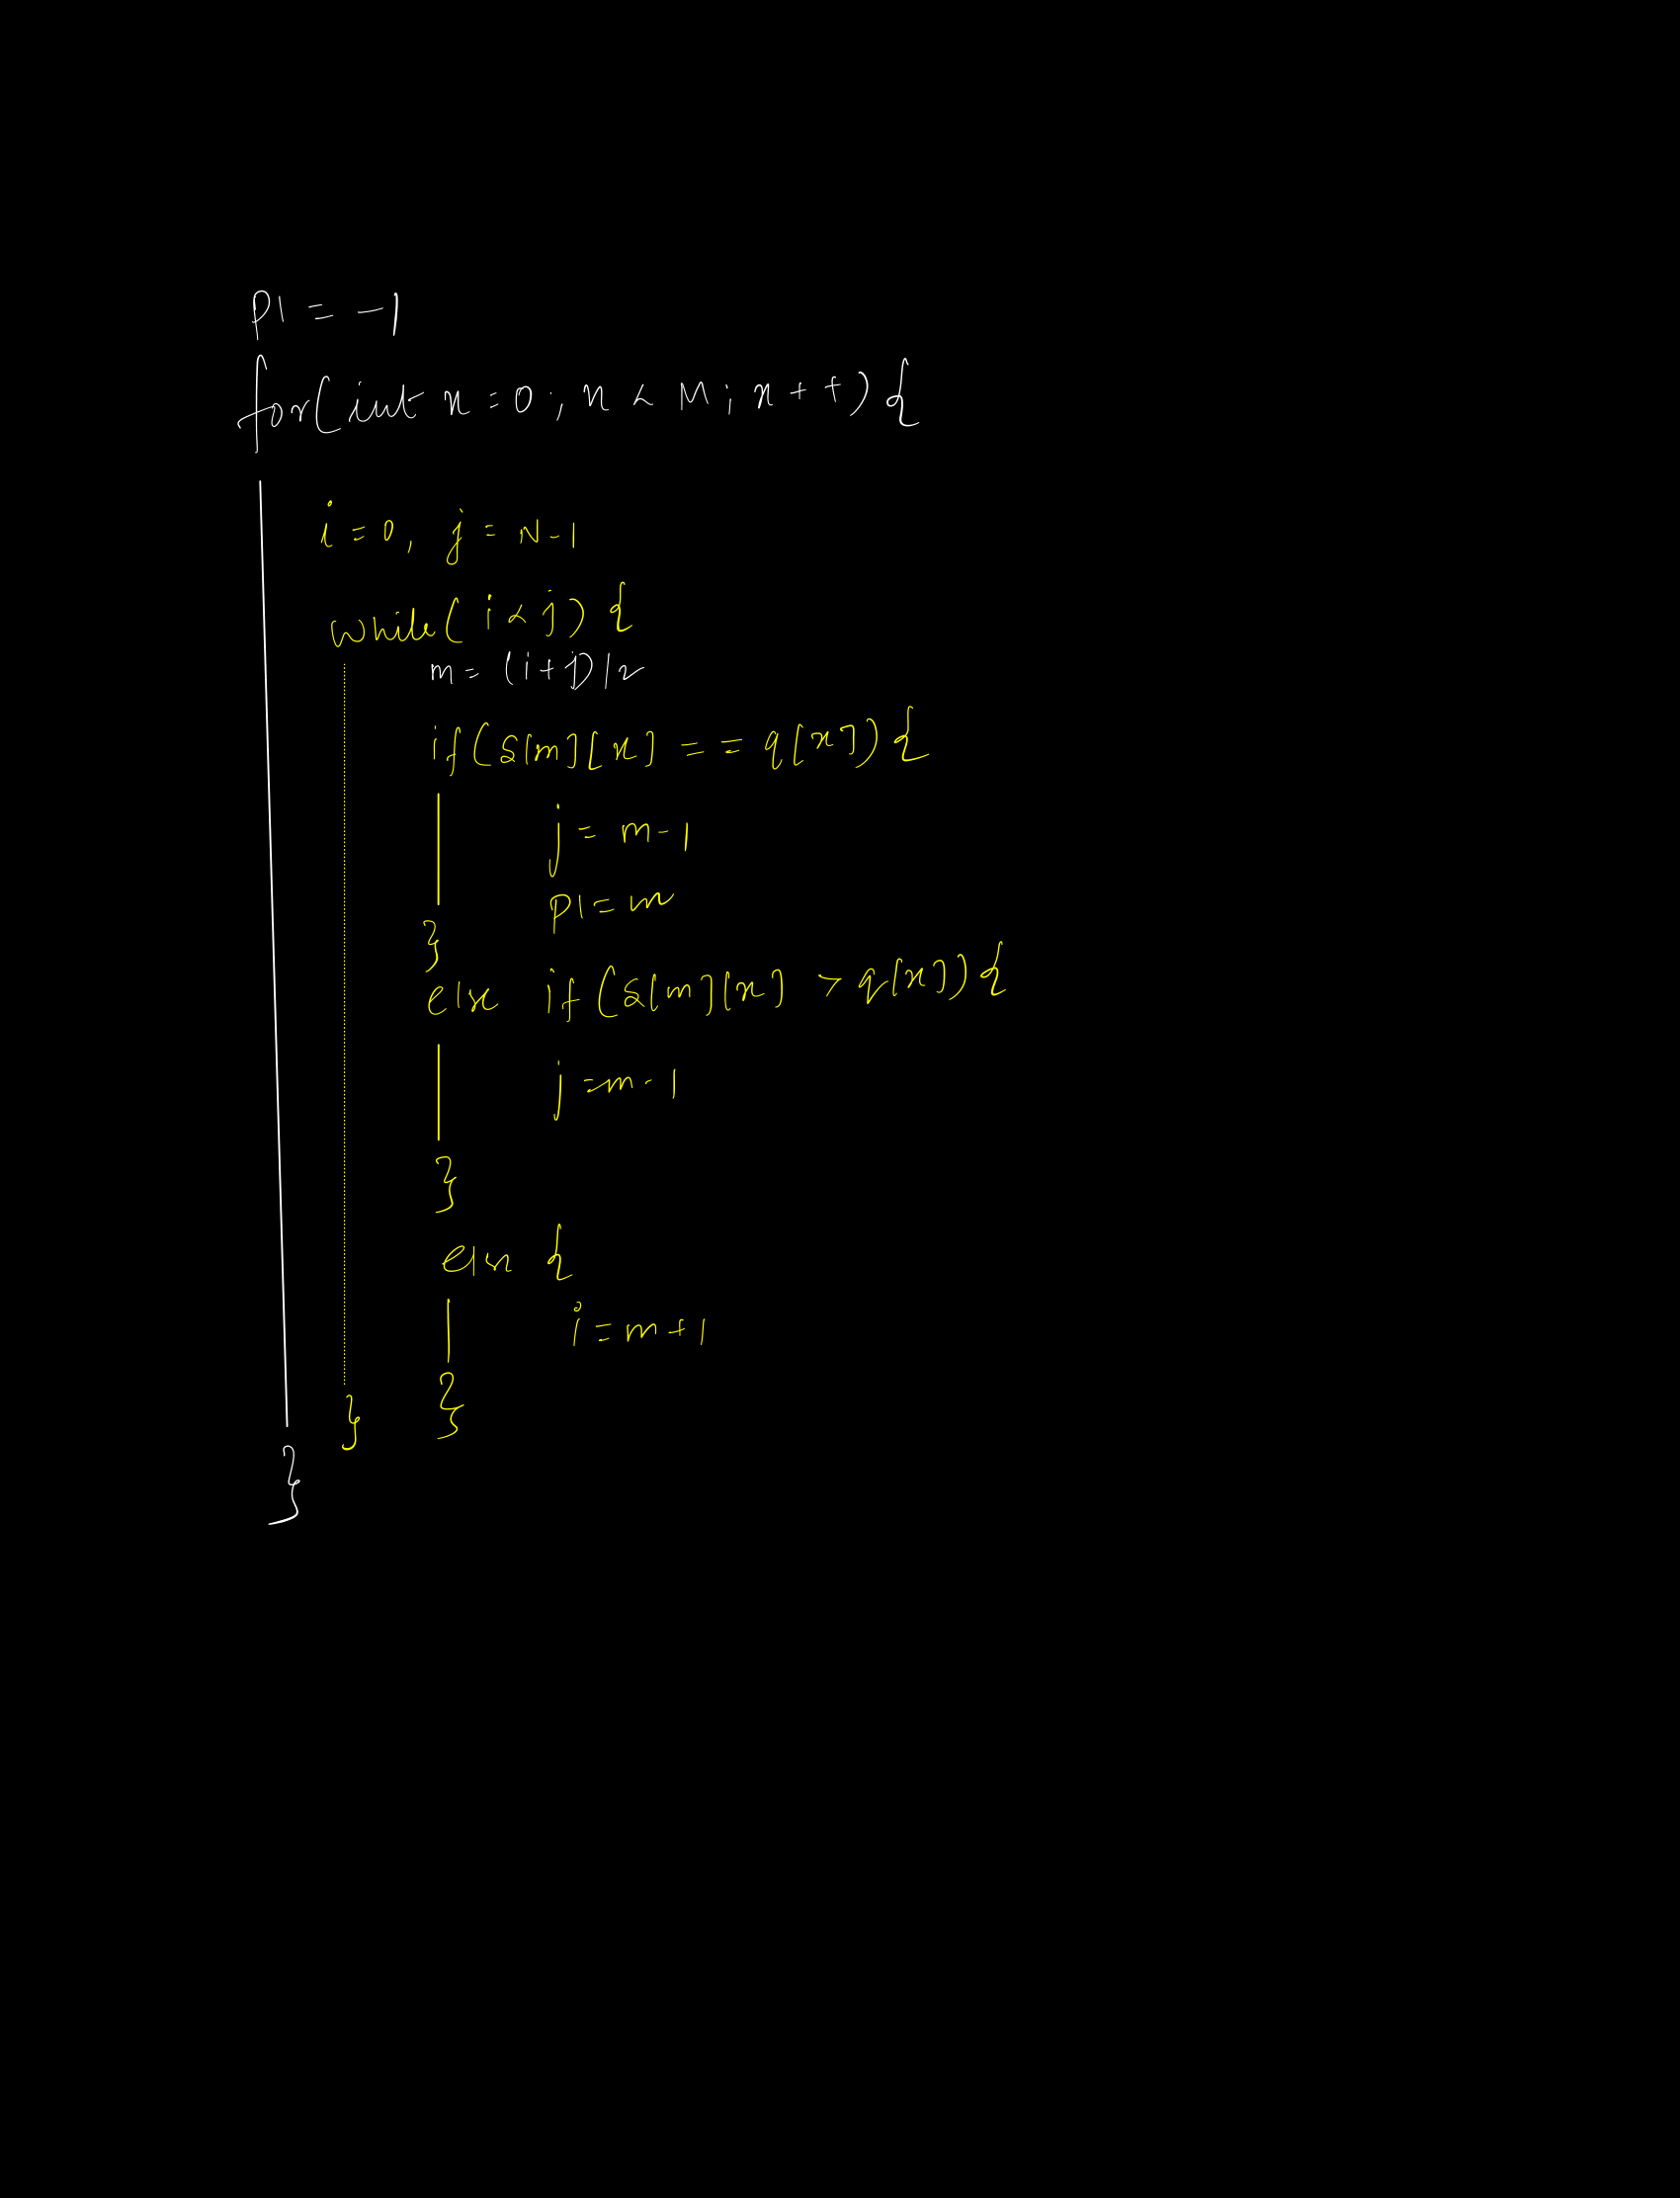 P1 = -1
for(int x=0; x < M; x++) {
i=0, j = N-1
while( i<j) {
m= (i+j)/2
if(S[m][x] == q[x]) {
j= m-1
P1= m
}
else if(S[m][x] > q[x]) {
j=m-1
}
else {
i=m+1
}
}
}